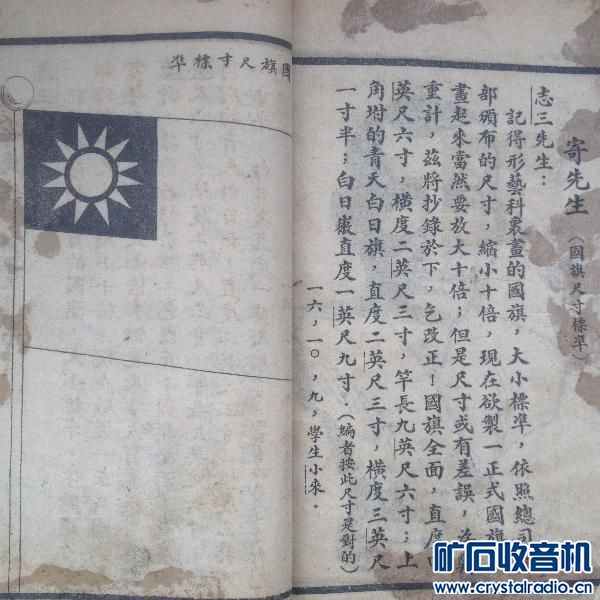 寄先生(國旗尺寸標準)
志三先生:
記得形藝科裏畫的國旗,大小標準,依照總司
部頒布的尺寸,縮小十倍,現在欲製一正式國旗
畫起來當然要放大十倍;但是尺寸或有差誤,為
重計,茲將抄錄於下,乞改正!國旗全面,直度
英尺六寸,橫度二英尺三寸,竿長九英尺六寸;上
角坿的青天白日旗,直度二英尺三寸,橫度三英尺
一寸半;白日徽直度一英尺九寸.(編者按此尺寸是對的)
一六,一〇,九,學生小來。
國旗尺寸標準
矿石收音机
www.crystalradio.cn